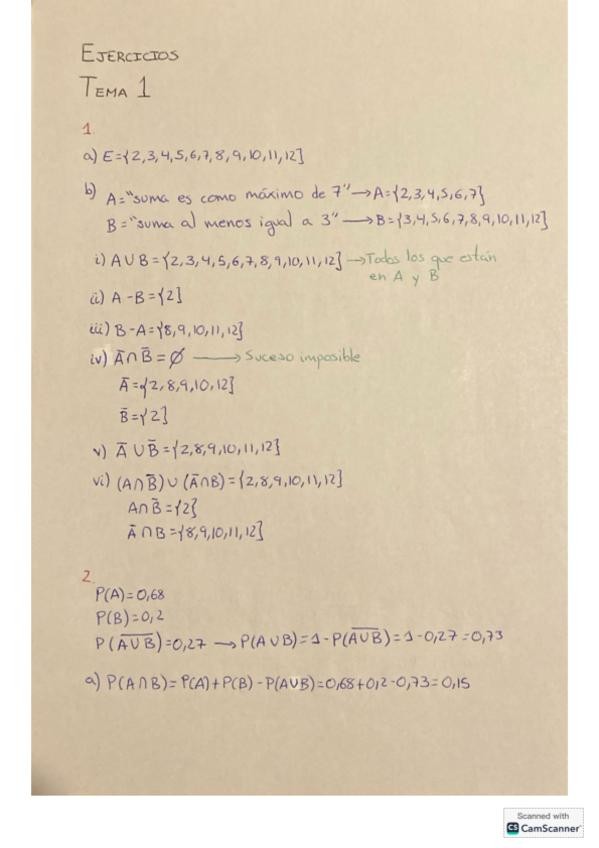 EJERCICIOS
TEMA 1
1.
a) E={2,3,4,5,6,7,8,9,10,11,12}
b) A="suma es como máximo de 7" → A={2,3,4,5,6,7}
B="suma al menos igual a 3" → B={3,4,5,6,7,8,9,10,11,12}
i) A∪B={2,3,4,5,6,7,8,9,10,11,12} → Todos los que están
en A y B
ii) A-B={2}
iii) B-A={8,9,10,11,12}
iv) Ā∩B̄=∅ → Suceso imposible
Ā={2,8,9,10,12}
B̄={2}
v) Ā∪B̄={2,8,9,10,11,12}
vi) (A∩B̄)∪(Ā∩B)={2,8,9,10,11,12}
A∩B̄={2}
Ā∩B={8,9,10,11,12}
2.
P(A)=0,68
P(B)=0,2
P(A̅∪̅B̅)=0,27 → P(A∪B)=1-P(A̅∪̅B̅)=1-0,27=0,73
a) P(A∩B)=P(A)+P(B)-P(A∪B)=0,68+0,2-0,73=0,15
Scanned with
CS CamScanner